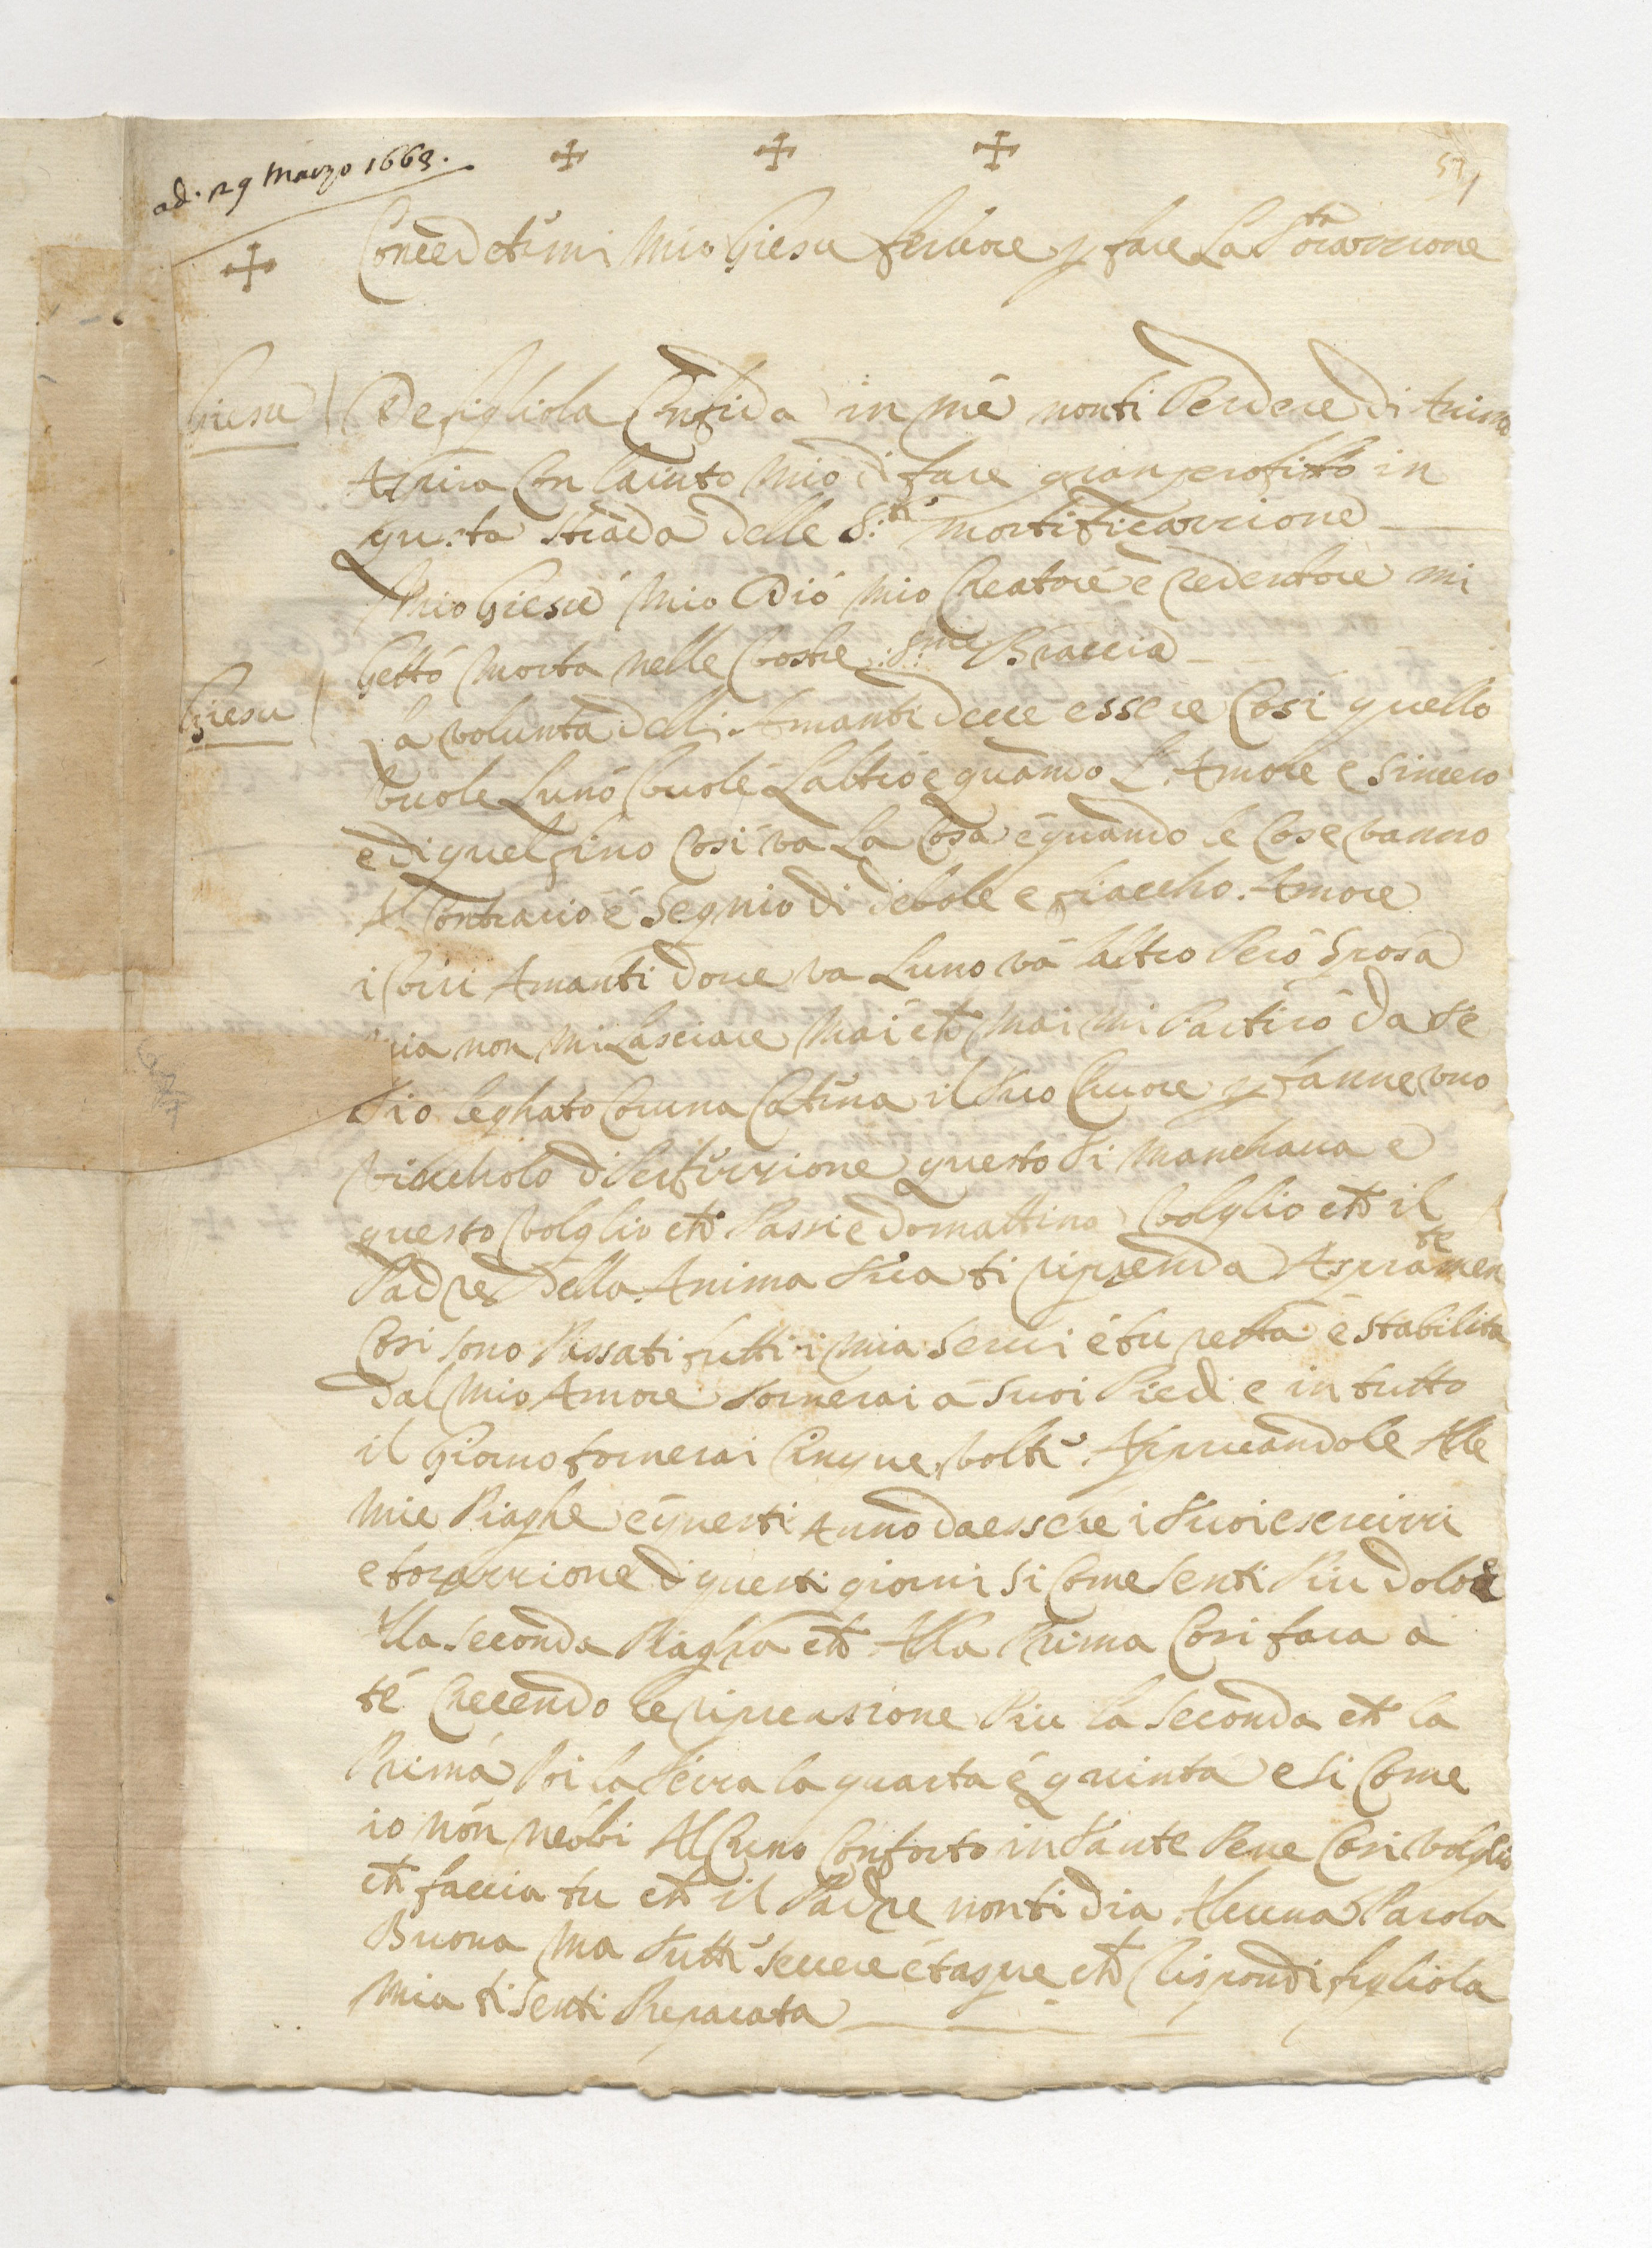 ad. 29 Marzo 1663.
Concedetimi mio Giesu feruore p fare La S.ta orazzione
Giesu
De figliola Confida in me nonti Perdere di Animo
Aspira Con laiuto mio di fare gran profitto in
questa strada delle S.te mortificazzione
Mio Giesu mio Dio mio Creatore e redentore mi
Getto morta nelle vostre S.me Braccia
Giesu
La volunta delli Amanti deve essere Cosi quello
vuole Luno vuole Laltro e quando L Amore e sincero
e di quel fino Cosi va La Cosa e quando le Cose vanno
Al Contrario e segnio di debole e fiaccho Amore
i veri Amanti doue va Luno va laltro Pero sposa
mia non mi Lasciare mai che mai mi Partiro da te
Tio leghato Conuna Catena il tuo Cuore p fanne uno
vincholo di Perfezzione questo ti manchaua e
questo volglio che Passi e domattina volglio che il
Padre della Anima tua ti riprenda Aspramen
te
Cosi sono Passati tutti i mia serui e tu retta e stabilita
dal mio Amore tornerai a suoi Piedi e in tutto
il Giorno tornerai Cinque volte Aplicandole Alle
mie Piaghe e questi Anno da essere i tuoi esercizzi
e torazzione di questi giorni si Come senti Piu dolore
Alla seconda Piagha che Alla Prima Cosi fara a
te Crecendo le riprensione Piu la seconda che la
Prima Poi la terza la quarta e quinta e si Come
io non nebbi AlCuno Conforto in tante Pene Cosi volglio
che faccia tu che il Padre nonti dia Alcuna Parola
Buona ma tutte seuere et aspre che rispondi figliola
mia ti senti Preparata